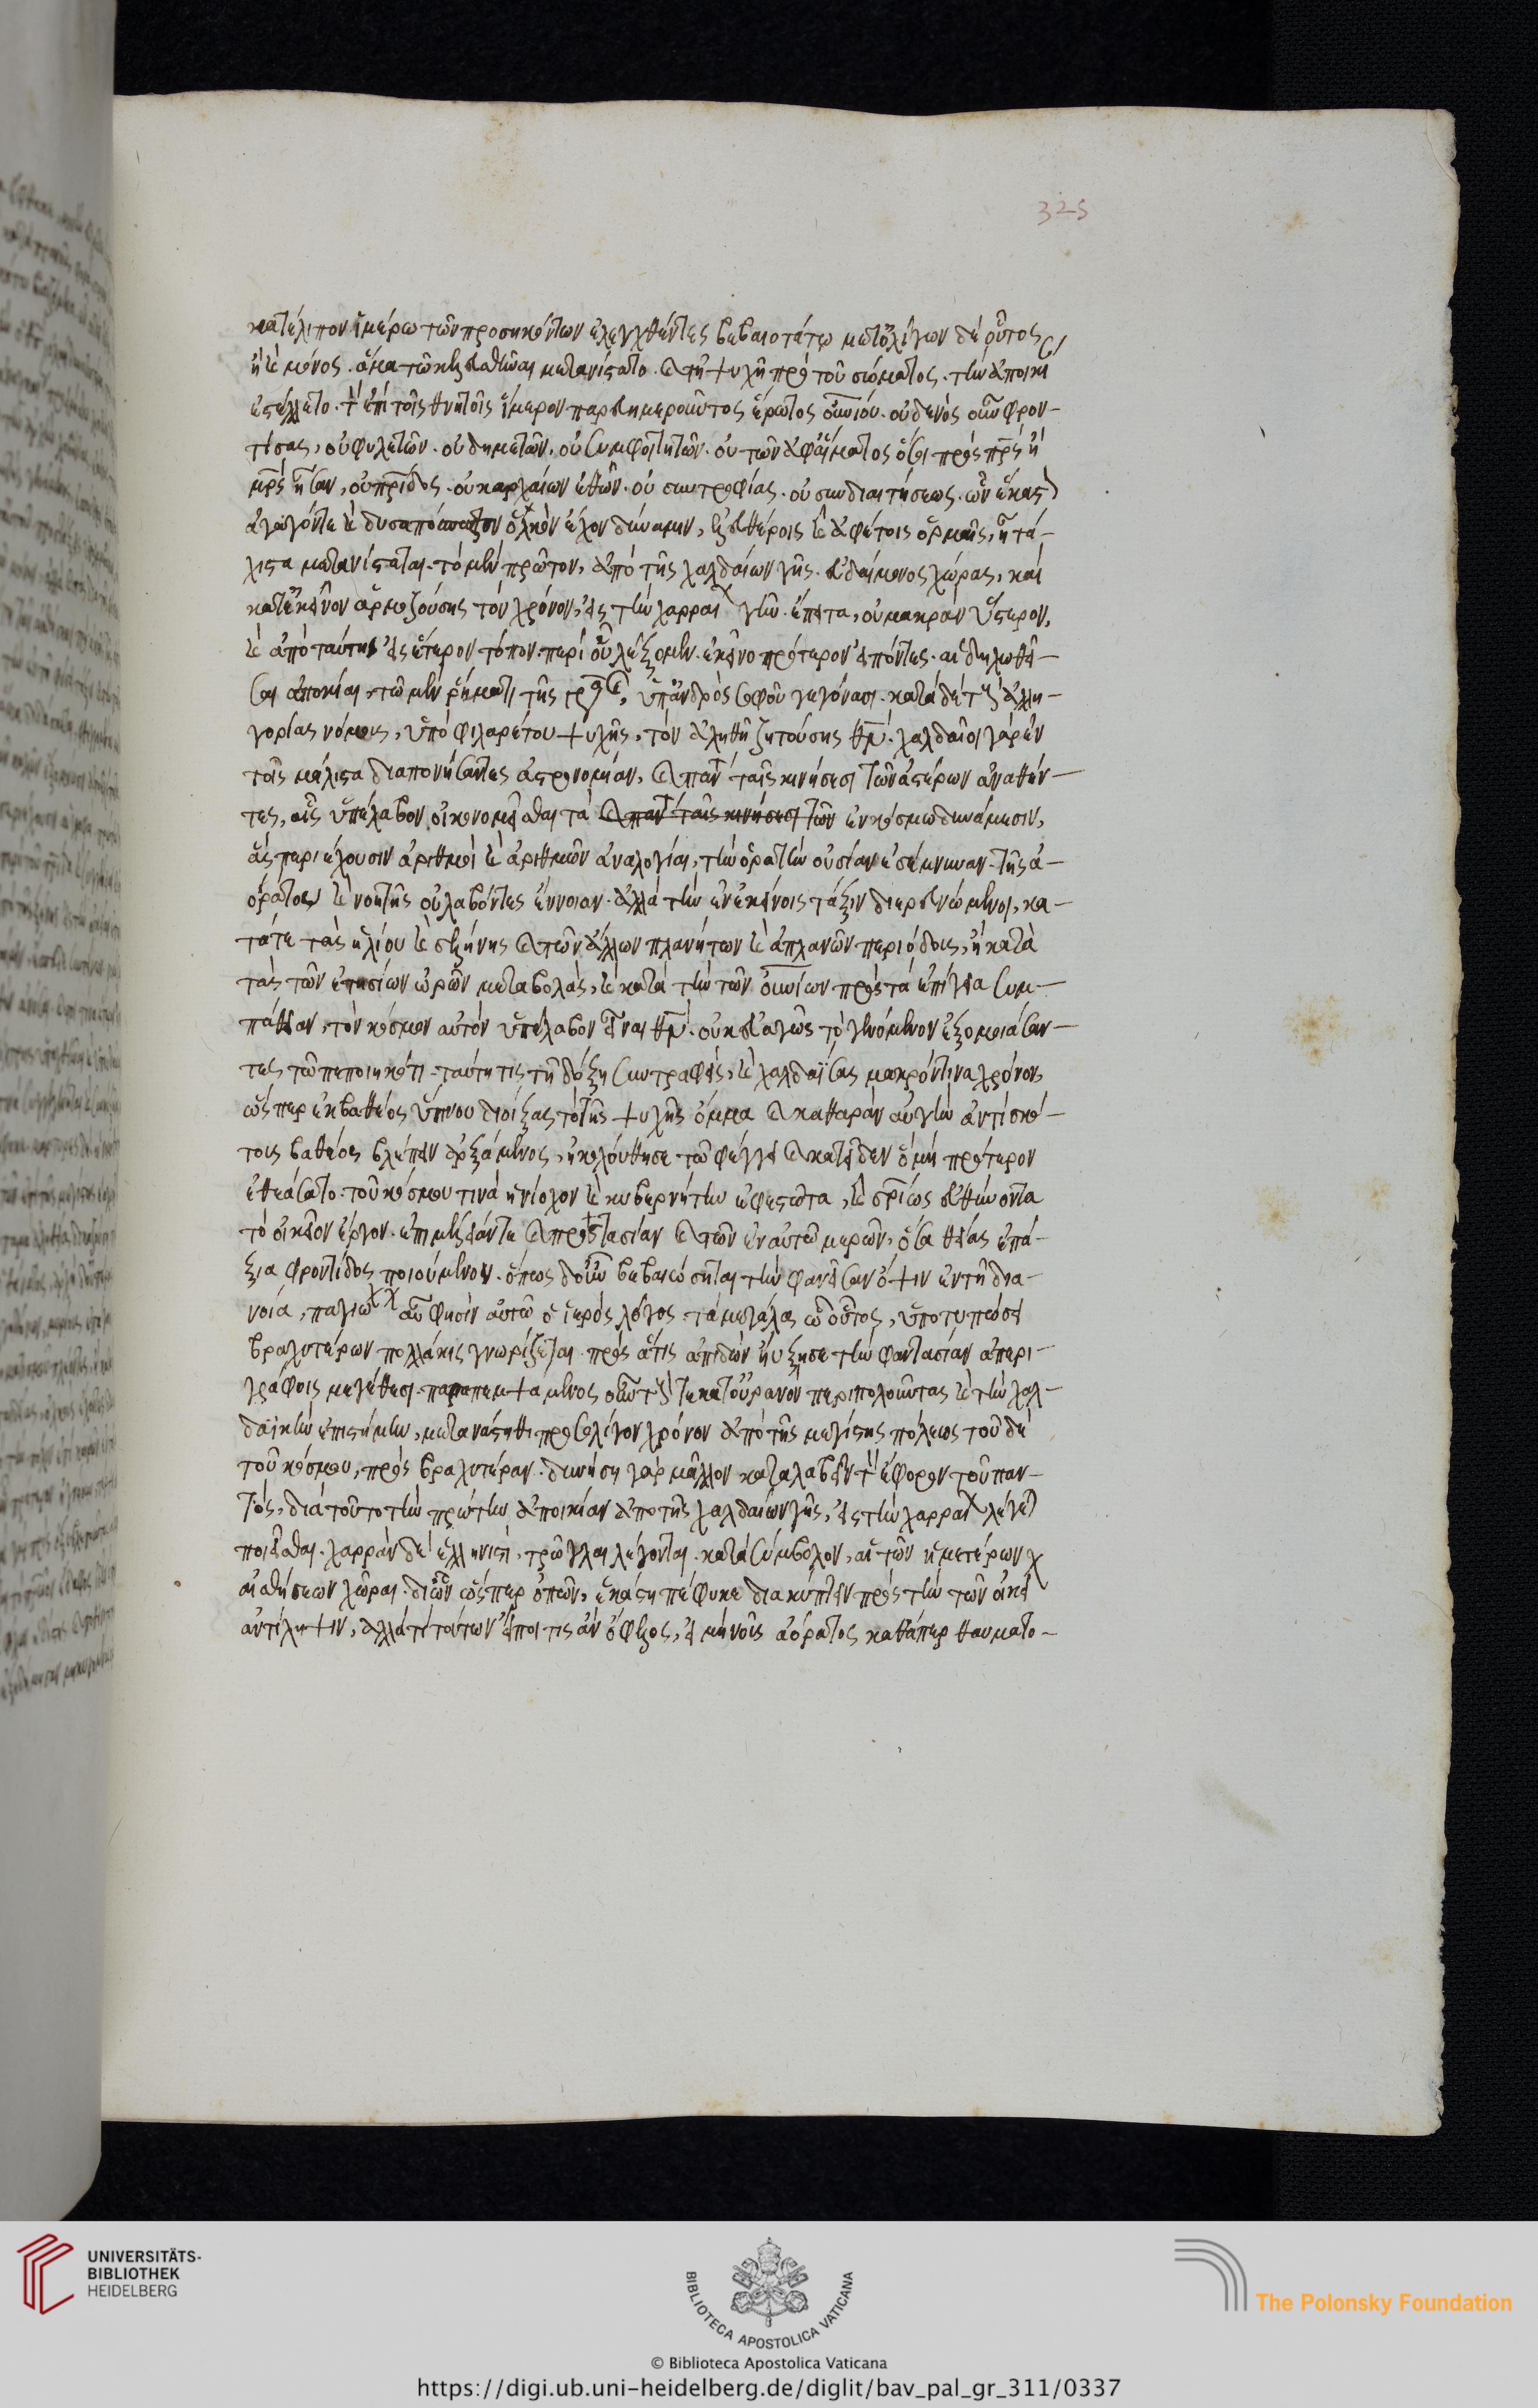 κατέλιπον ἱμέρω τῶν προσηκόντων ἐλεγχθέντες βεβαιοτάτῳ μετ' ὀλίγων δὲ οὗτος
ἢ καὶ μόνος. ἅμα τῶ κελευσθῆναι μετανίστατο. καὶ τῆ ψυχῆ πρὸ τοῦ σώματος. τὴν ἀποικι
ἐστέλλετο. τὸν ἐπὶ τοῖς θνητοῖς ἵμερον παρευημεροῦντος ἔρωτος οὐνίου. οὐδενὸς οὖν φρον-
τίσας, οὐ φυλετῶν. οὐ δημοτῶν, οὐ συμφοιτητῶν. οὐ τῶν ἀφ' αἵματος ὅσοι πρὸς πρς ἢ
μρς ἦσαν, οὐ πρίδος. οὐκ ἀρχαίων ἐθῶν. οὐ συντροφίας. οὐ συνδιαιτήσεως. ὧν ἕκαστ
ἀγωγόν τε καὶ δυσαπόσπαστον ὁλκὸν ἔχον δύναμιν, ἐλευθέροις καὶ ἀφέτοις ὁρμαῖς, ἧ τά-
χιστα μετανίσταται. τὸ μὲν πρῶτον, ἀπὸ τῆς χαλδαίων γῆς. εὐδαίμονος χώρας, καὶ
κατ' ἐκεῖνον ἁρμοζούσης τὸν χρόνον, εἰς τὴν χαρραι γῆν. ἔπειτα, οὐ μακρὰν ὕστερον,
καὶ ἀπὸ ταύτης εἰς ἕτερον τόπον. περὶ οὗ λέξομεν. ἐκεῖνο πρότερον εἰπόντες. αἱ δηλωθεῖ-
σαι ἀποικίαι, τῶ μὲν ῥήματι τῆς γρ, ὑπ' ἀνδρὸς σοφοῦ γεγόνασι. κατὰ δὲ τοὺς ἀλλη-
γορίας νόμους, ὑπὸ φιλαρέτου ψυχῆς, τὸν ἀληθῆ ζητούσης θν. χαλδαῖοι γὰρ ἐν
τοῖς μάλιστα διαπονήσαντες ἀστρονομίαν, καὶ πάντα ταῖς κινήσεσι τῶν ἀστέρων ἀναθέν-
τες, αἷς ὑπέλαβον οἰκονομεῖσθαι τὰ καὶ πάντα ταῖς κινήσεσι τῶν ἐν κόσμω δυνάμεσιν,
ἃς περιέχουσιν ἀριθμοὶ καὶ ἀριθμῶν ἀναλογίαι, τὴν ὁρατὴν οὐσίαν ἐσέμνυναν. τῆς ἀ-
οράτου καὶ νοητῆς οὐ λαβόντες ἔννοιαν. ἀλλὰ τὴν ἐν ἐκείνοις τάξιν διερευνώμενοι, κα-
τά τε τὰς ἡλίου καὶ σελήνης καὶ τῶν ἄλλων πλανήτων καὶ ἀπλανῶν περιόδους, ἢ κατὰ
τὰς τῶν ἐτησίων ὡρῶν μεταβολὰς, καὶ κατὰ τὴν τῶν οὐνίων πρὸς τὰ ἐπίγεια συμ-
πάθειαν, τὸν κόσμον αὐτὸν ὑπέλαβον εἶναι θν. οὐκ εὐαγῶς τὸ γενόμενον ἐξομοιώσαν-
τες, τῶ πεποιηκότι. ταύτη τις τῆ δόξη συντραφεὶς, καὶ χαλδαΐσας μακρόν τινα χρόνον,
ὥσπερ ἐκ βαθέος ὕπνου διοίξας τὸ τῆς ψυχῆς ὄμμα καὶ καθαρὰν αὐγὴν ἀντὶ σκό-
τους βαθέος βλέπειν ἀρξάμενος, ἠκολούθησε τῶ φέγγει καὶ κατεῖδεν ὃ μὴ πρότερον
ἐθεάσατο. τοῦ κόσμου τινὰ ἡνίοχον καὶ κυβερνήτην ἐφεστῶτα, καὶ σρίως εὐθύνοντα
τὸ οἰκεῖον ἔργον. ἐπιμέλειάν τε καὶ προστασίαν καὶ τῶν ἐν αὐτῶ μερῶν, ὅσα θείας ἐπά-
ξια φροντίδος ποιούμενον. ὅπως δ' οὖν βεβαιώσηται τὴν φανεῖσαν ὄψιν ἐν τῆ δια-
νοία, παγίω αὖ φησὶν αὐτῶ ὁ ἱερὸς λόγος. τὰ μεγάλα, ὦ οὗτος, ὑποτυπώσει
βραχυτέρων πολλάκις γνωρίζεται. πρὸς ἅ τις ἀπιδὼν ηὔξησε τὴν φαντασίαν ἀπερι-
γράφοις μεγέθεσι. παραπεμψάμενος οὖν τούς τε κατ' οὐρανὸν περιπολοῦντας καὶ τὴν χαλ-
δαϊκὴν ἐπιστήμην, μετανάστηθι πρὸς ὀλίγον χρόνον ἀπὸ τῆς μεγίστης πόλεως τοῦ δὲ
τοῦ κόσμου, πρὸς βραχυτέραν. δυνήση γὰρ μᾶλλον καταλαβεῖν τὸν ἔφορον τοῦ παν-
τός. διὰ τοῦτο τὴν πρώτην ἀποικίαν ἀπὸ τῆς χαλδαίων γῆς, εἰς τὴν χαρραι λέγε
ποιεῖσθαι. χαρρὰν δὲ ἑλληνιστὶ, τρῶγλαι λέγονται. κατὰ σύμβολον, αἱ τῶν ἡμετέρων
αἰσθήσεων χῶραι. δι' ὧν ὥσπερ ὀπῶν, ἑκάστη πέφυκε διακύπτειν πρὸς τὴν τῶν οἰκεί
ἀντίληψιν, ἀλλὰ τί τούτων εἴποι τις ἂν ὄφελος, εἰ μὴ νοῦς ἀόρατος καθάπερ θαυματο-
325
UNIVERSITÄTS-
BIBLIOTHEK
HEIDELBERG
BIBLIOTECA APOSTOLICA VATICANA
© Biblioteca Apostolica Vaticana
The Polonsky Foundation
https://digi.ub.uni-heidelberg.de/diglit/bav_pal_gr_311/0337